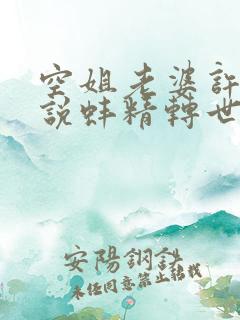 空姐老婆許
說蚌精轉世
安陽鋼鉄
未经同意禁止转载